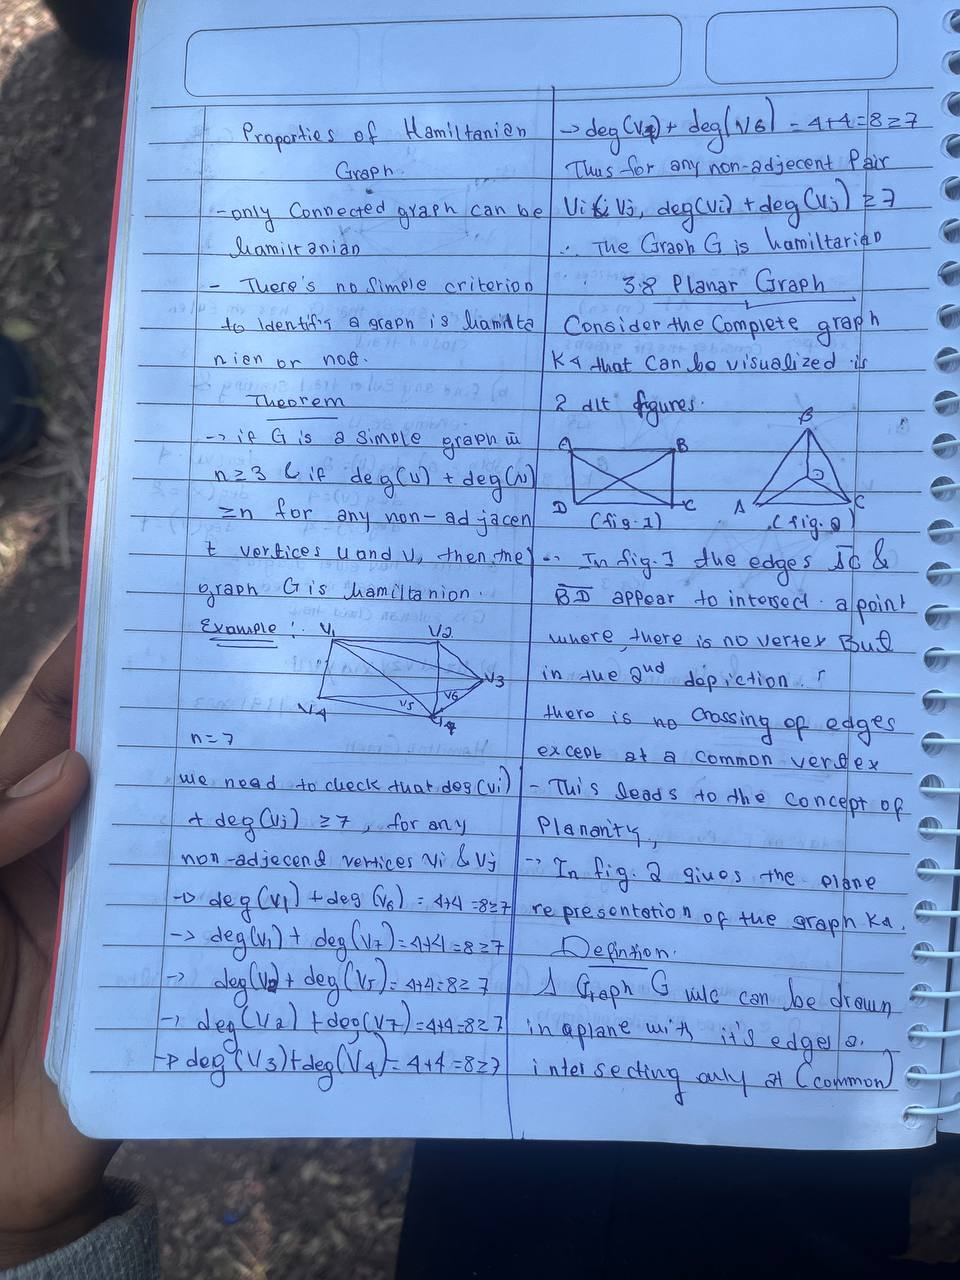 Properties of Hamiltanien
Graph.
- only Connected graph can be
hamiltanian
- There's no simple criterion
to identifis a graph is hamilta
nien or not.
Theorem
-> if G is a simple graph w̄
n≥3 & if deg(u) + deg(v)
≥n for any non-adjacen
t vertices u and v, then the
graph G is hamiltanion.
Example :.
V1 V2
V3
V4 V5 V6
V7
n=7
we need to check that deg(vi)
+ deg(Vj) ≥7, for any
non-adjecend vertices Vi & Vj
-> deg(V1) + deg(V6) = 4+4 =8≥7
-> deg(V1) + deg(V7)=4+4=8≥7
-> deg(V2) + deg(V5)=4+4=8≥7
-> deg(V2) + deg(V7)=4+4=8≥7
-> deg(V3)+deg(V4)=4+4=8≥7
-> deg(V4) + deg(V6) = 4+4=8≥7
Thus for any non-adjecent Pair
Vi & Vj, deg(Vi) + deg(Vj) ≥7
∴ The Graph G is hamiltarian
3.8 Planar Graph
Consider the Complete graph
K4 that can be visualized is
2 dlt figures.
A B
D C
(fig.1)
B
D
A C
(fig.2)
- In fig.1 the edges AC &
BD appear to intersect a point
where, there is no vertex But
in the 2nd depiction.
there is no Crossing of edges
except at a common vertex
- This leads to the concept of
Planarity,
-> In fig.2 gives the plane
representation of the graph K4.
Defintion.
A Graph G w/c can be drawn
in a plane with it's edges
intersecting only at (common)